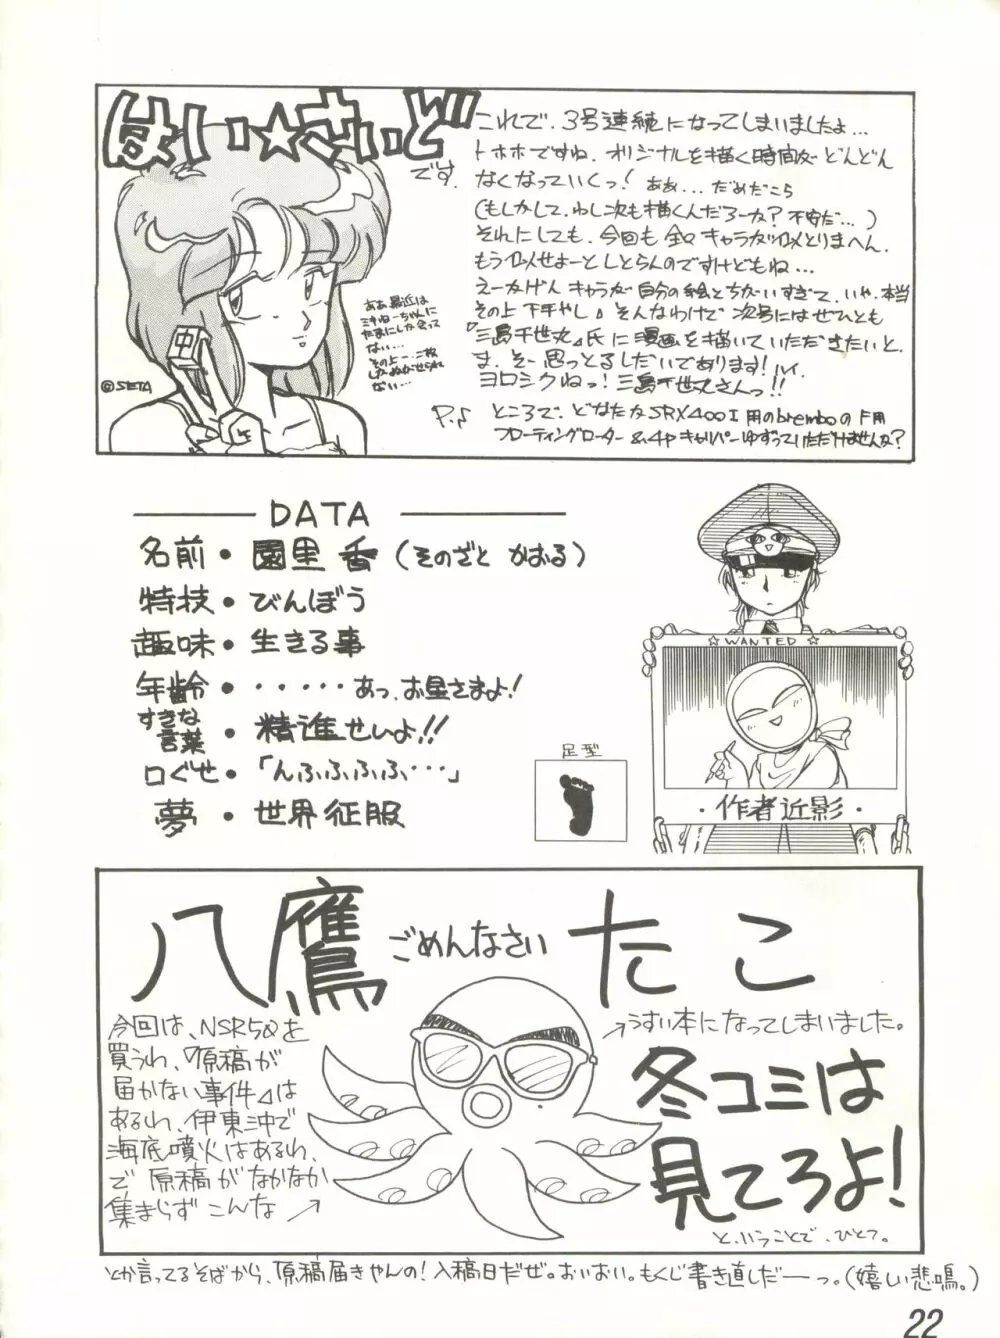 はい☆さいど
です。
これで、3号連続になってしまいましたよ…
トホホですね、オリジナルを描く時間が どんどん
なくなっていくっ! ああ…だめだこら
(もしかして、わし次も描くんだろーか? 不安だ…)
それにしても、今回も 全々キャラがイメとりまへん。
もうイメせよーとしとらんのですけどもね…
えーかげん キャラが 自分の絵とちがいすぎて、いや、本当
その上 下手やし♪ そんなわけで 次号にはぜひとも
『三島千世丸』氏に漫画を描いていただきたいと、
ま、そー思っとるしだいであります! ハイ、
ヨロシクねっ! 三島千世丸さんっ!!
P.♪ ところで、どなたか SRX400I用のbremboのF用
フローティングローター & 4pキャリパーゆずっていただけませんか?
ああ最近は
ミキねーちゃんに
たまにしか会って
ない…
その上…二枚
しかぬがせられ
ない…
中
©SETA
DATA
名前・園里 香(そのざと かおる)
特技・びんぼう
趣味・生きる事
年齢・・・・・・あっ、お星さまよ!
すきな
言葉・精進せいよ!!
口ぐせ・「んふふふふ…」
夢・世界征服
足型
☆WANTED☆
・作者近影・
八鷹 ごめんなさい たこ
今回は、NSR50を
買うわ、『原稿が
届かない事件』は
あるわ、伊東沖で
海底噴火はあるわ、
で 原稿がなかなか
集まらず こんな
うすい本になってしまいました。
冬コミは
見てろよ!
と、いうことで、ひとつ。
とか言ってるそばから、原稿届きやんの! 入稿日だぜ。おいおい。もくじ書き直しだーっ。(嬉しい悲鳴。)
22